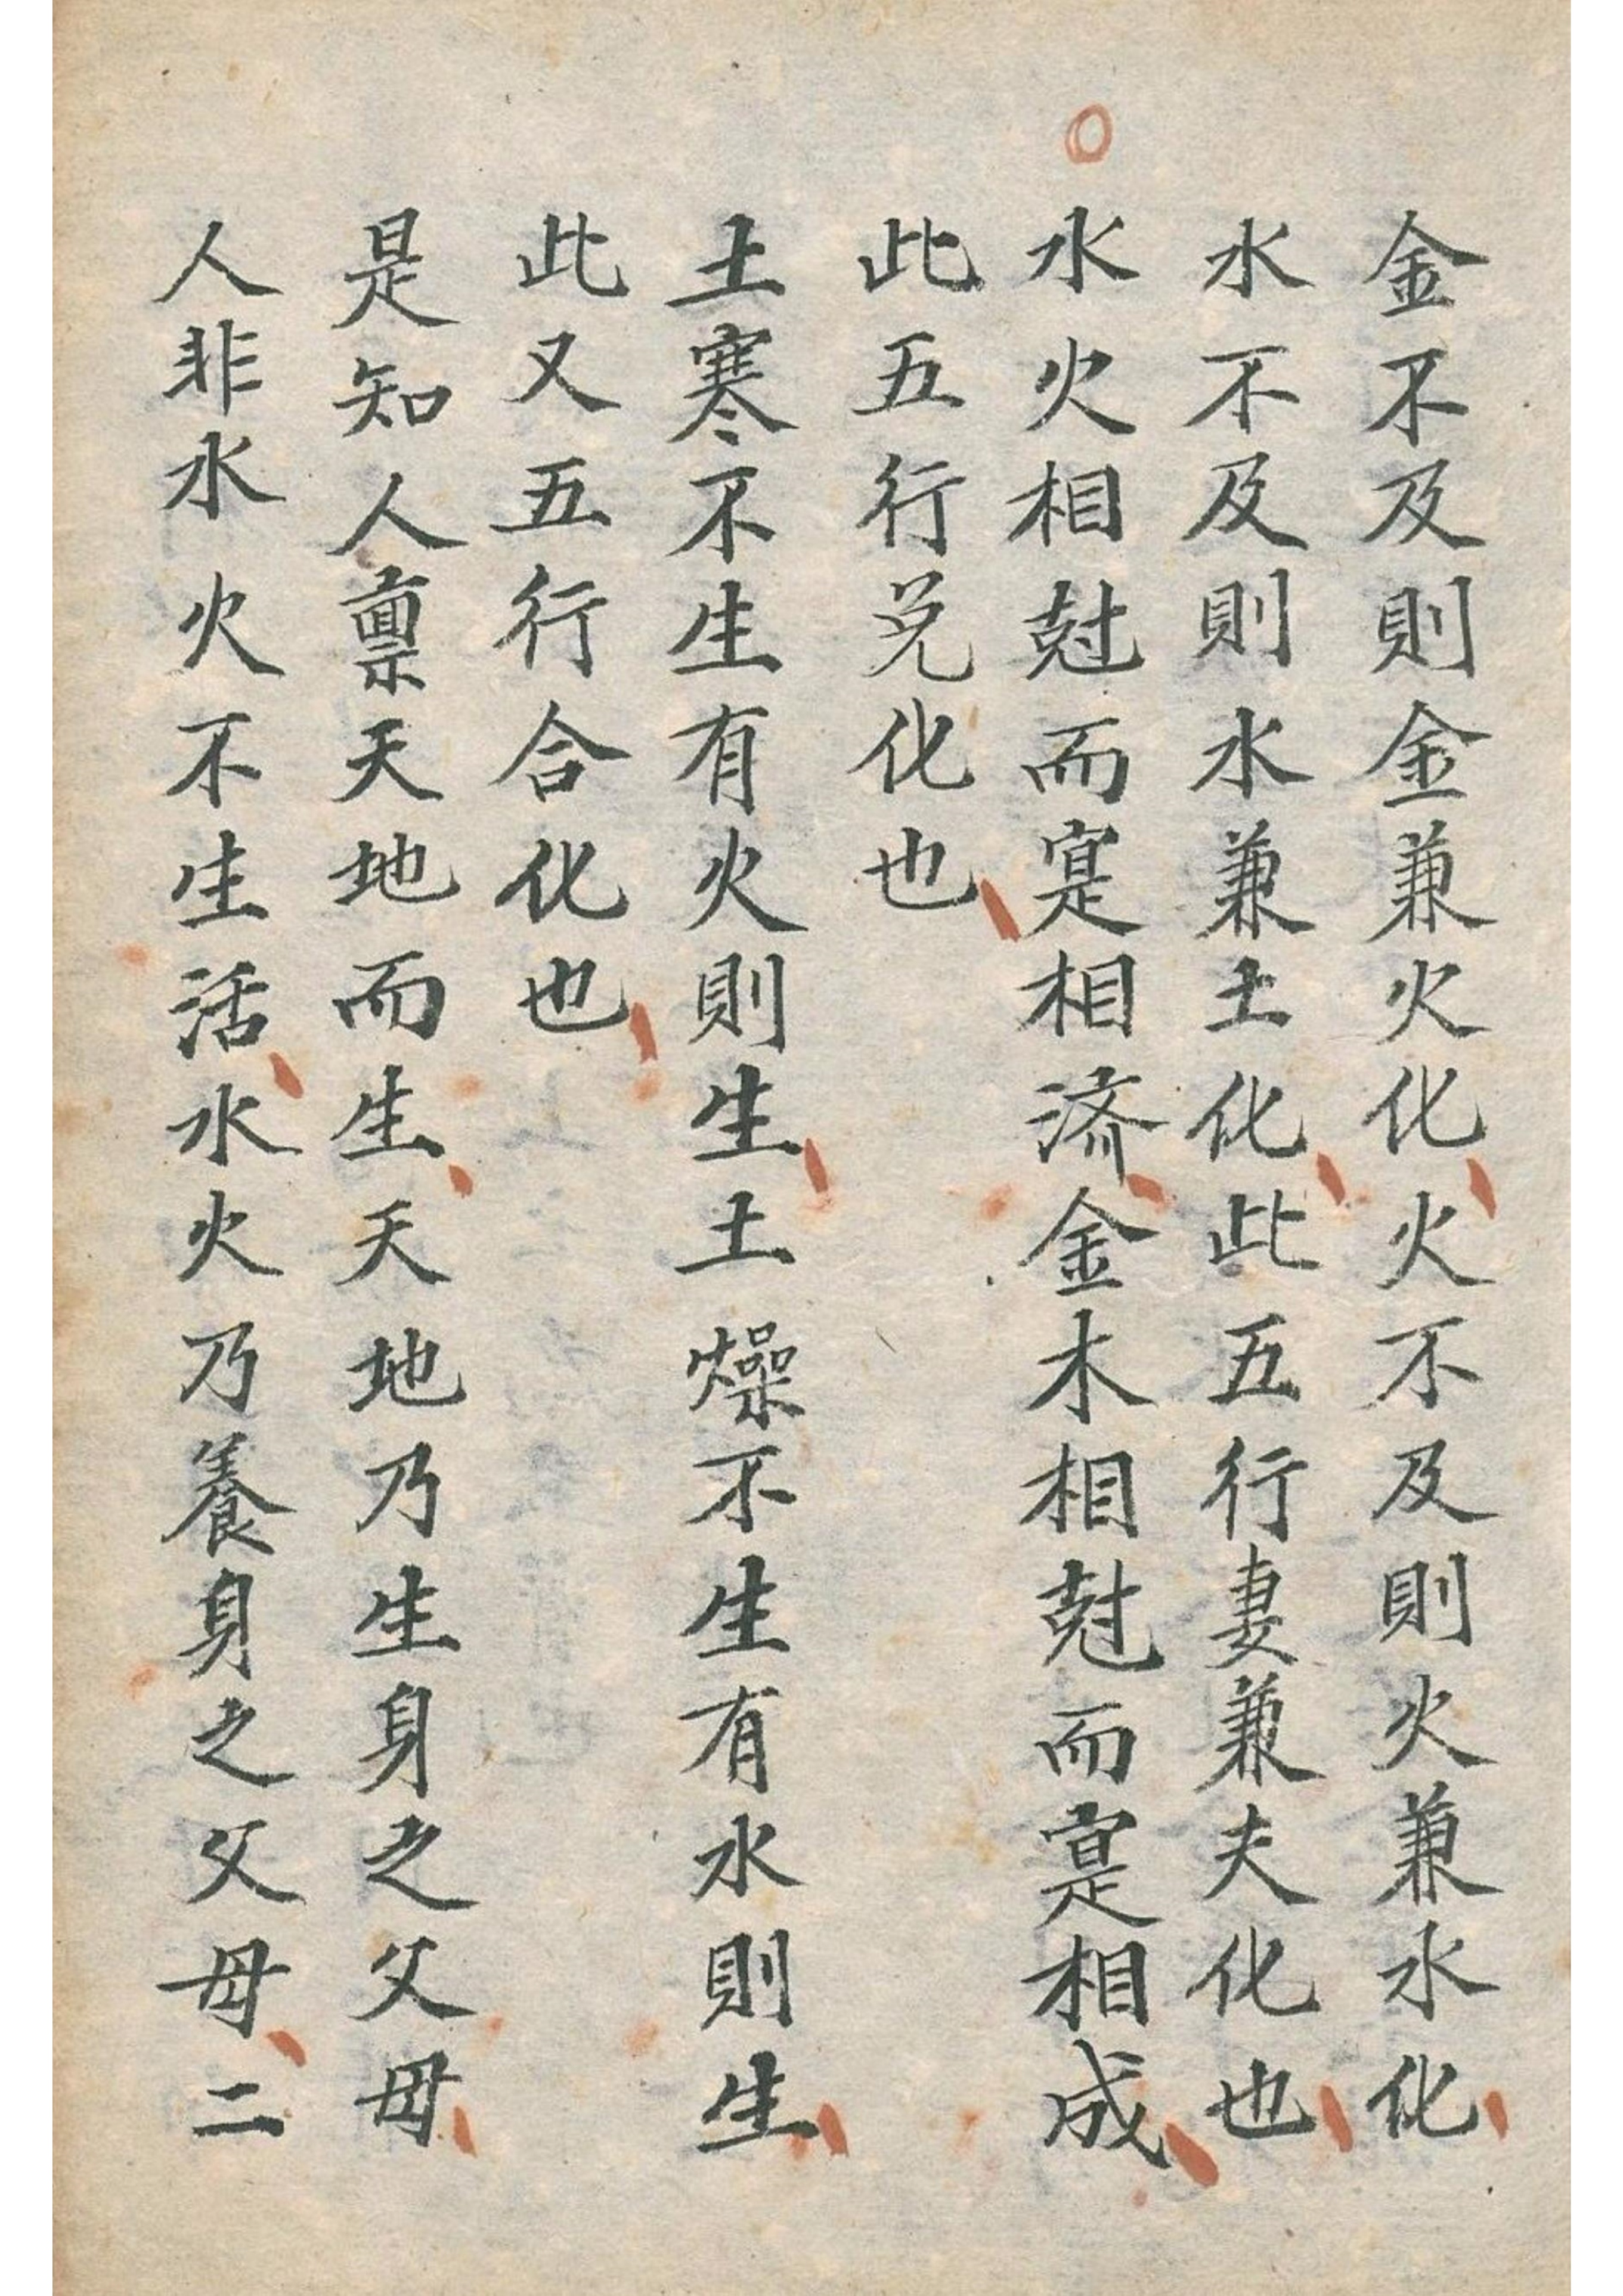 金不及則金兼火化火不及則火兼水化
水不及則水兼土化此五行妻兼夫化也
水火相尅而寔相済金木相尅而寔相成
此五行兑化也
土寒不生有火則生土燥不生有水則生
此又五行合化也
是知人禀天地而生天地乃生身之父母
人非水火不生活水火乃養身之父母二